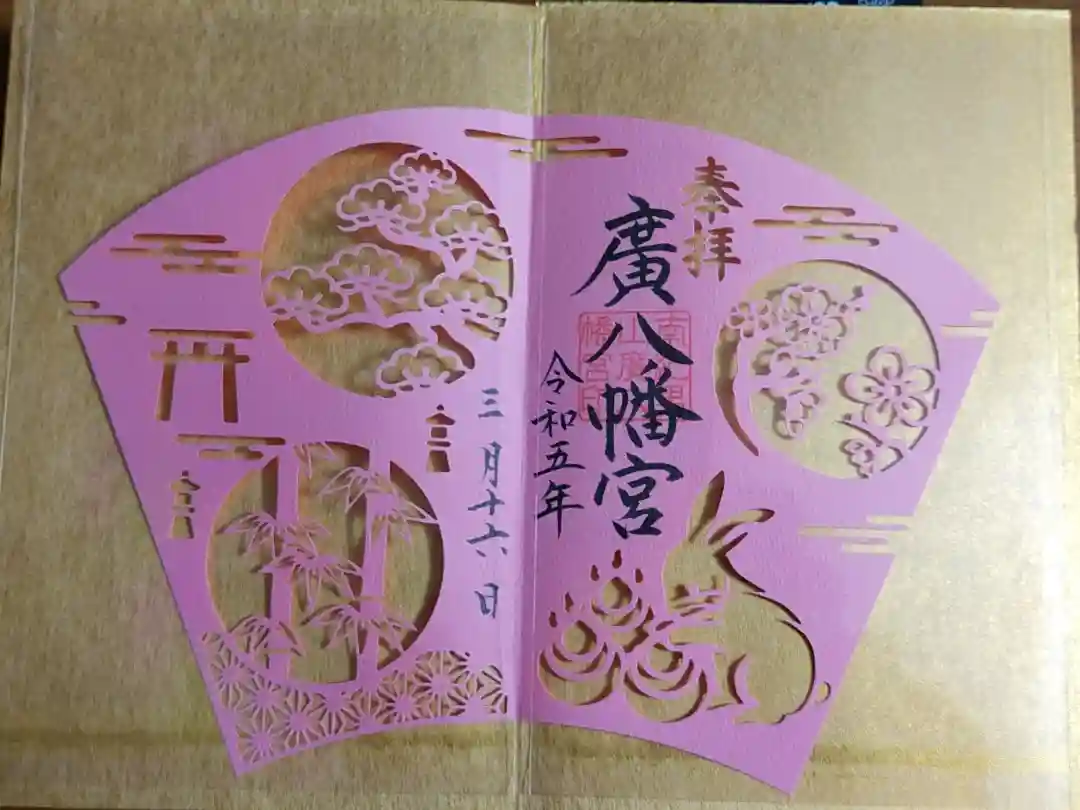 奉拝
廣八幡宮
令和五年
三月十六日